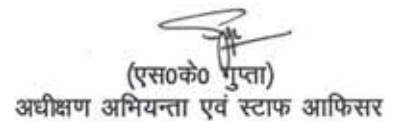 (एस०के० गुप्ता)
अधीक्षण अभियन्ता एवं स्टाफ आफिसर